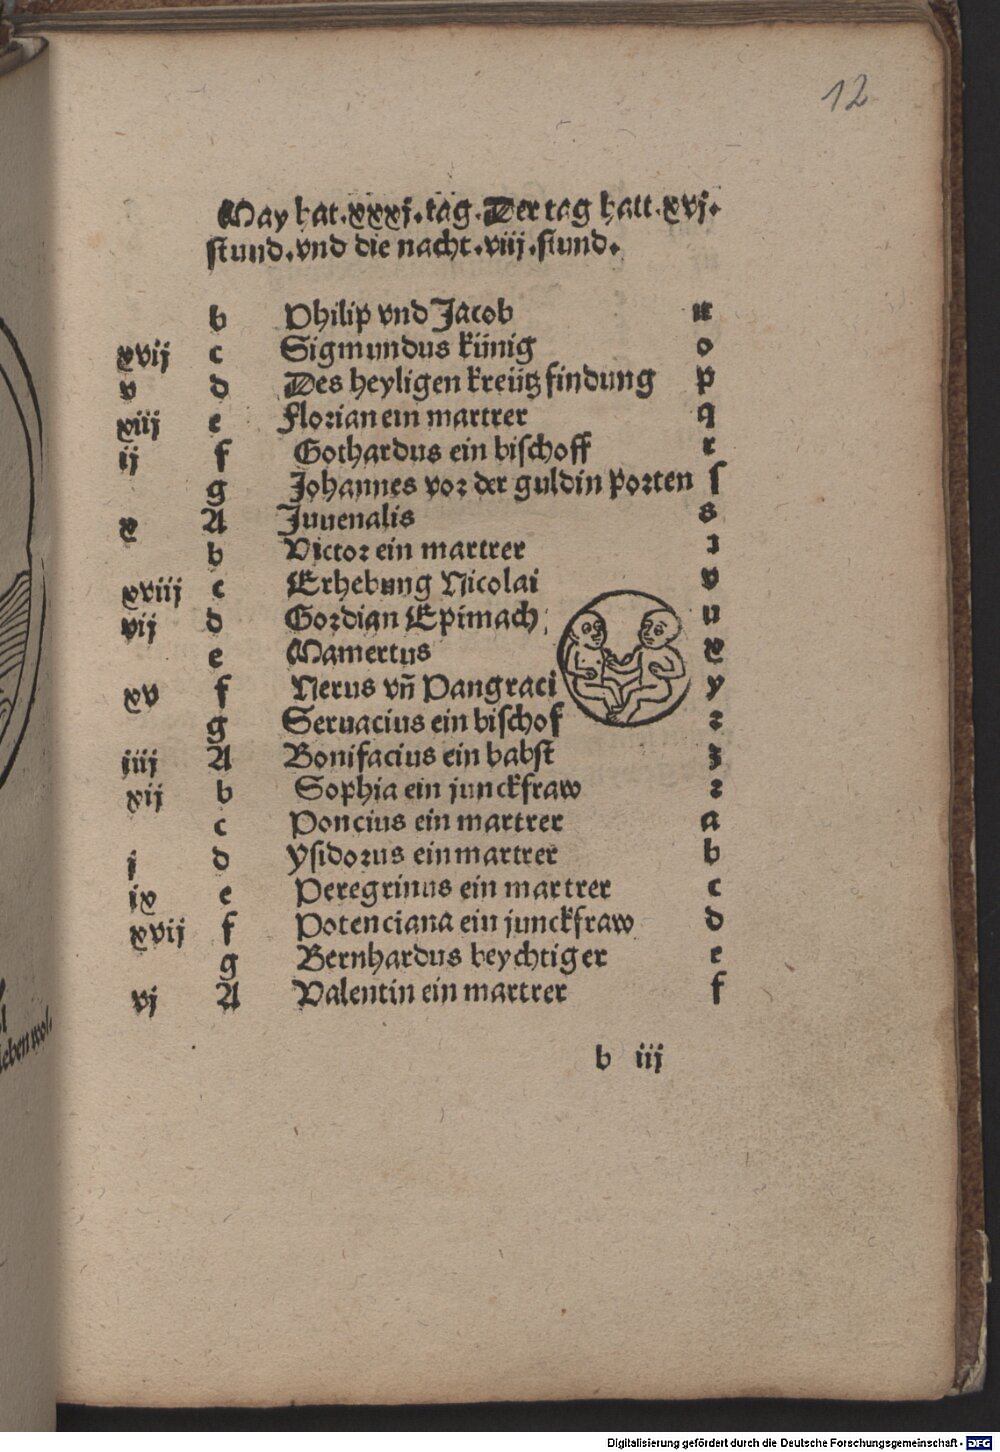 12
May hat.xxxj.tag.Der tag hatt.xvj.
stund.vnd die nacht.viij.stund.
b Philip vnd Jacob n
xvij c Sigmundus künig o
v d Des heyligen kreütz findung p
xiij e Florian ein martrer q
ij f Gothardus ein bischoff r
g Johannes vor der guldin porten ſ
x A Juuenalis s
b Victor ein martrer
xviij c Erhebung Nicolai v
vij d Gordian Epimach u
e Mamertus x
xv f Nerus vñ Pangraci y
g Seruacius ein bischof z
iiij A Bonifacius ein babst ʒ
xij b Sophia ein junckfraw
c Poncius ein martrer a
j d Ysidorus ein martrer b
ix e Peregrinus ein martrer c
xvij f Potenciana ein junckfraw d
g Bernhardus beychtiger e
vj A Valentin ein martrer f
b iij
leben wol.
Digitalisierung gefördert durch die Deutsche Forschungsgemeinschaft - DFG